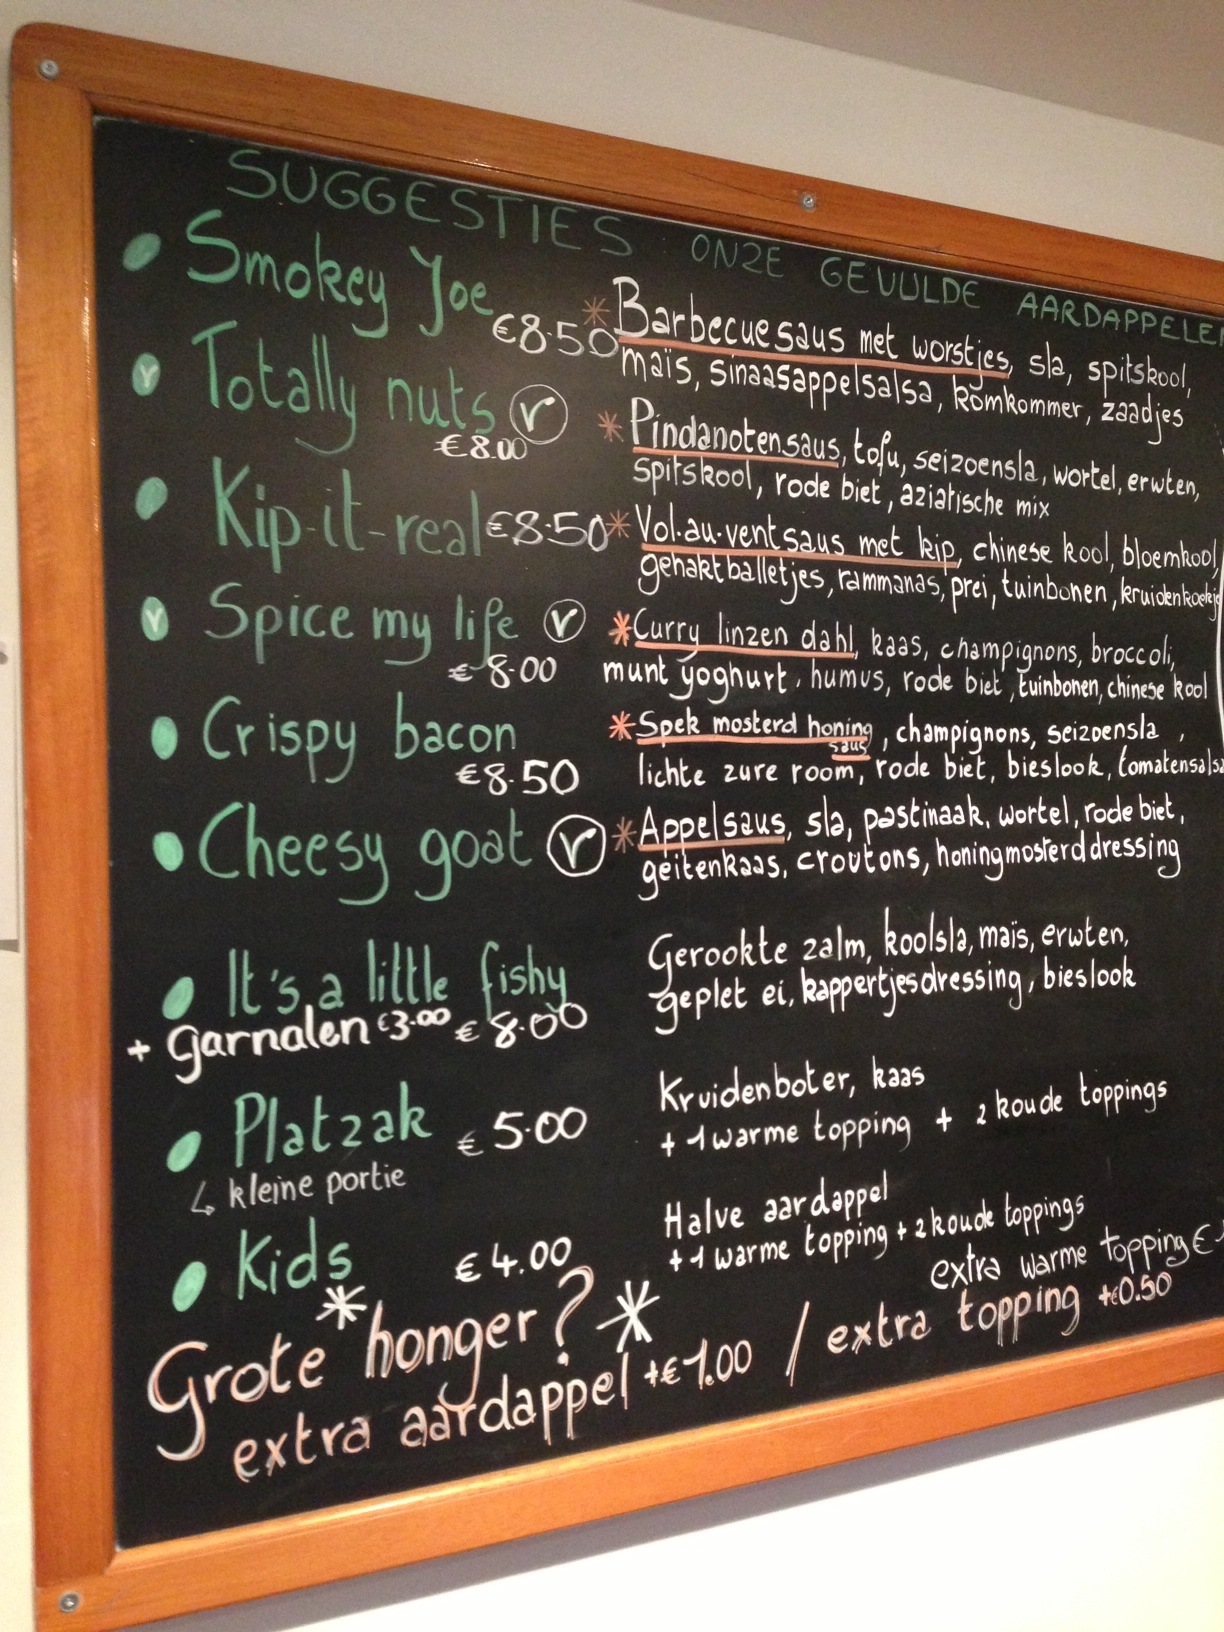 SUGGESTIES : ONZE GEVULDE AARDAPPELEN
Smokey Joe
€8.50
* Barbecuesaus met worstjes, sla, spitskool,
maïs, sinaasappelsalsa, komkommer, zaadjes
Totally nuts V
€8.00
* Pindanotensaus, tofu, seizoensla, wortel, erwten,
spitskool, rode biet, aziatische mix
Kip-it-real €8.50
* Vol.au.ventsaus met kip, chinese kool, bloemkool,
gehaktballetjes, rammanas, prei, tuinbonen, kruidenkoekje
Spice my life V
€8.00
* Curry linzen dahl, kaas, champignons, broccoli,
munt yoghurt, humus, rode biet, tuinbonen, chinese kool
Crispy bacon
€8.50
* Spek mosterd honing saus, champignons, seizoensla,
lichte zure room, rode biet, bieslook, tomatensalsa
Cheesy goat V
* Appelsaus, sla, pastinaak, wortel, rode biet,
geitenkaas, croutons, honingmosterddressing
It's a little fishy
+ garnalen €3.00 € 8.00
Gerookte zalm, koolsla, maïs, erwten,
geplet ei, kappertjesdressing, bieslook
Platzak € 5.00
↳ kleine portie
Kruidenboter, kaas
+ 1 warme topping + 2 koude toppings
Kids € 4.00
Halve aardappel
+ 1 warme topping + 2 koude toppings
extra warme topping €
* Grote honger? *
extra aardappel +€1.00 / extra topping +€0.50